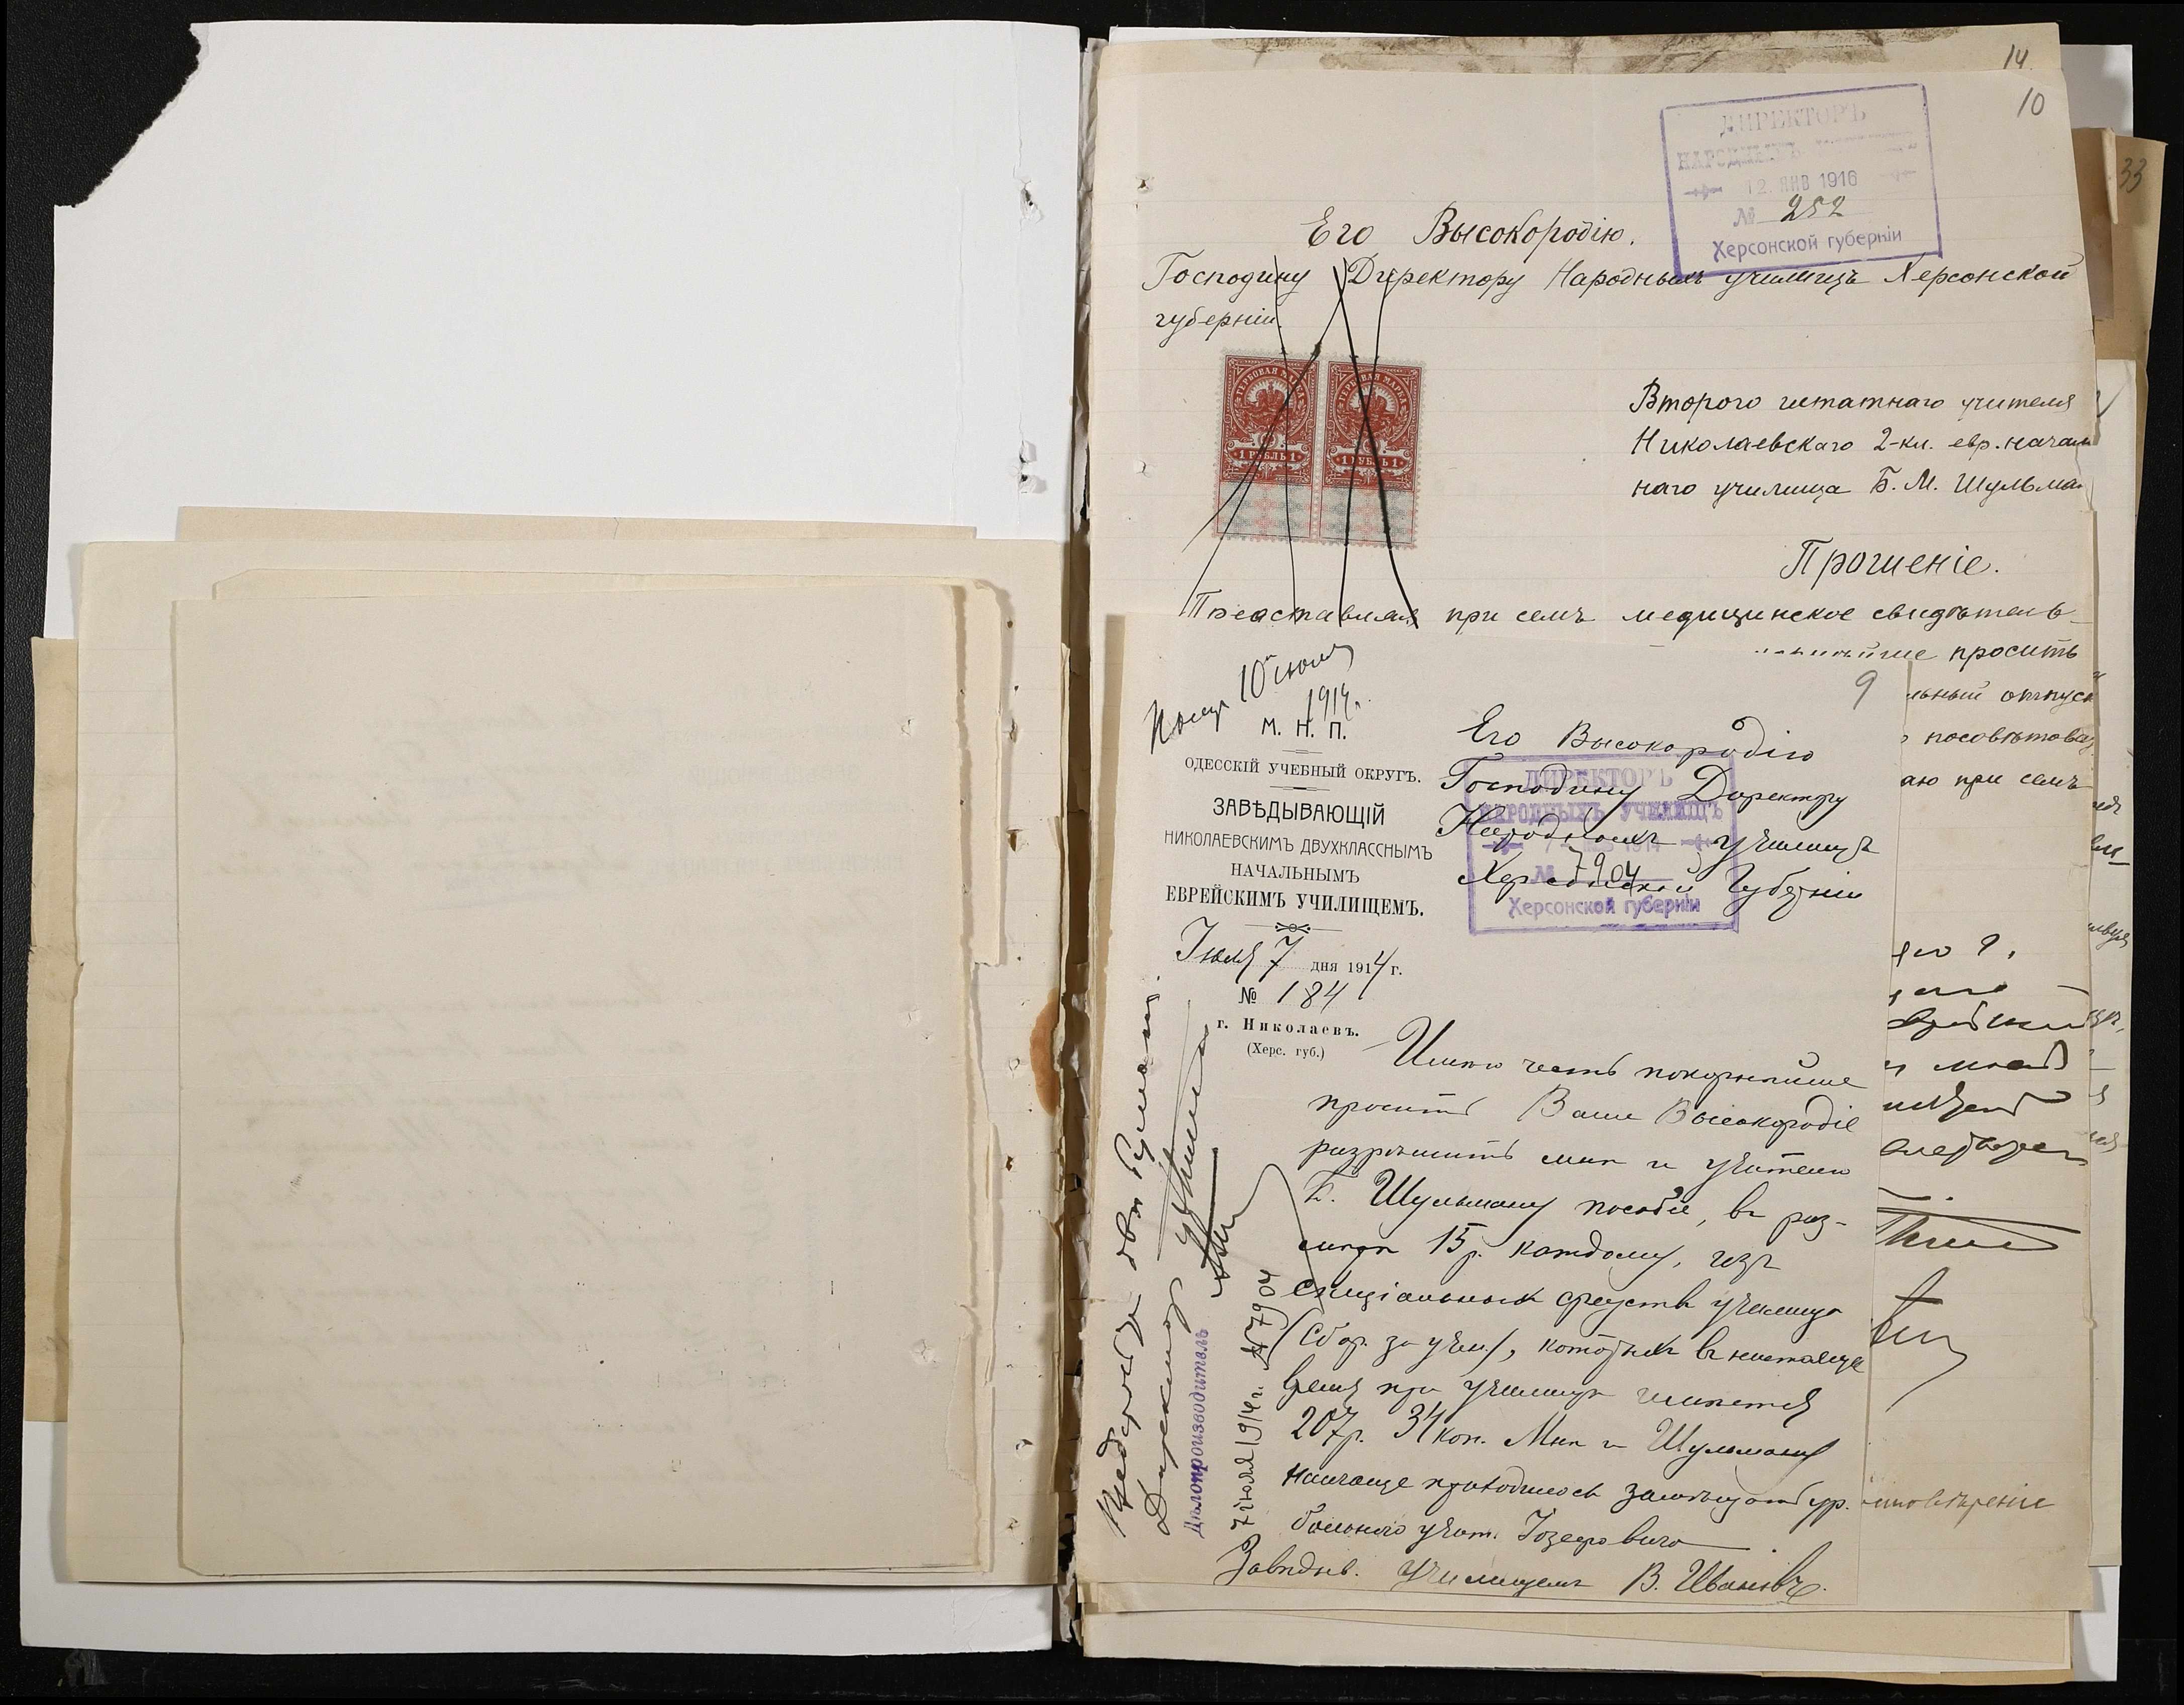 14
10
33
ДИРЕКТОРЪ
НАРОДНЫХЪ УЧИЛИЩЪ
12. ЯНВ 1916
№ 252
Херсонской губерніи
Его Высокородію.
Господину Директору Народныхъ училищъ Херсонской
губерніи.
ГЕРБОВАЯ МАРКА
1 РУБЛЬ 1
ГЕРБОВАЯ МАРКА
1 РУБЛЬ 1
Второго штатнаго учителя
Николаевскаго 2-кл. евр. началь
наго училища Б. М. Шульма
Прошеніе.
Представляя при семъ медицинское свидѣтель-
просить
льный отпуск
посовѣтова
аю при семъ
9
Получ 10 іюля
1914 г.
М. Н. П.
ОДЕССКІЙ УЧЕБНЫЙ ОКРУГЪ.
ЗАВѢДЫВАЮЩІЙ
НИКОЛАЕВСКИМЪ ДВУХКЛАССНЫМЪ
НАЧАЛЬНЫМЪ
ЕВРЕЙСКИМЪ УЧИЛИЩЕМЪ.
Іюля 7 дня 1914 г.
№ 184
г. Николаевъ.
(Херс. губ.)
Его Высокородію
Господину Директору
Народныхъ училищъ
Херсонской Губерніи
ДИРЕКТОРЪ
НАРОДНЫХЪ УЧИЛИЩЪ
1914
№ 7904
Херсонской губерніи
Имѣю честь покорнѣйше
просить Ваше Высокородіе
разрѣшить мнѣ и учителю
Б. Шульману пособіе, въ раз-
мѣрѣ 15 р. каждому, изъ
спеціальныхъ средствъ училища
(сбор. за учен.), которыхъ въ настояще
время при училищѣ имѣется
207 р. 34 коп. Мнѣ и Шульману
наичаще приходилось замѣщать ур.
больного учит. Іозефовича
Завѣдыв. Училищемъ В. Ивановъ.
Директоръ
Дѣлопроизводитель
7 іюля 1914 г. № 7904